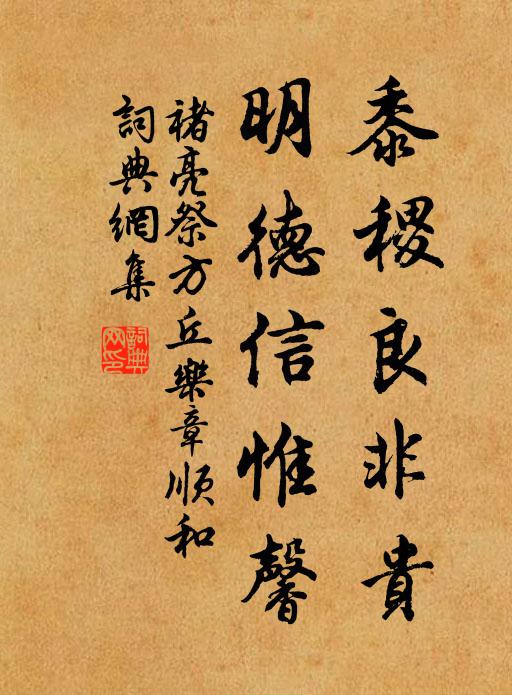 黍稷良非貴
明德信惟馨
褚亮祭方丘樂章順和
詞典網集
詞典網印